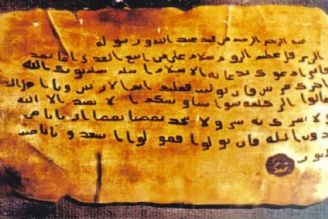 بسم الله الرحمن الرحيم من محمد عبد الله ورسوله
الى هرقل عظيم الروم سلام على من اتبع الهدى اما بعد
فانى ادعوك بدعاية الاسلام اسلم تسلم يوتك الله
اجرك مرتين فان توليت فعليك اثم الاريسين ويا اهل
تعالوا الى كلمة سوا بيننا وبينكم الا نعبد الا الله
ولا نشرك به شيا ولا يتخذ بعضنا بعضا اربابا من
دون الله فان تولوا فقولوا اشهدوا بانا